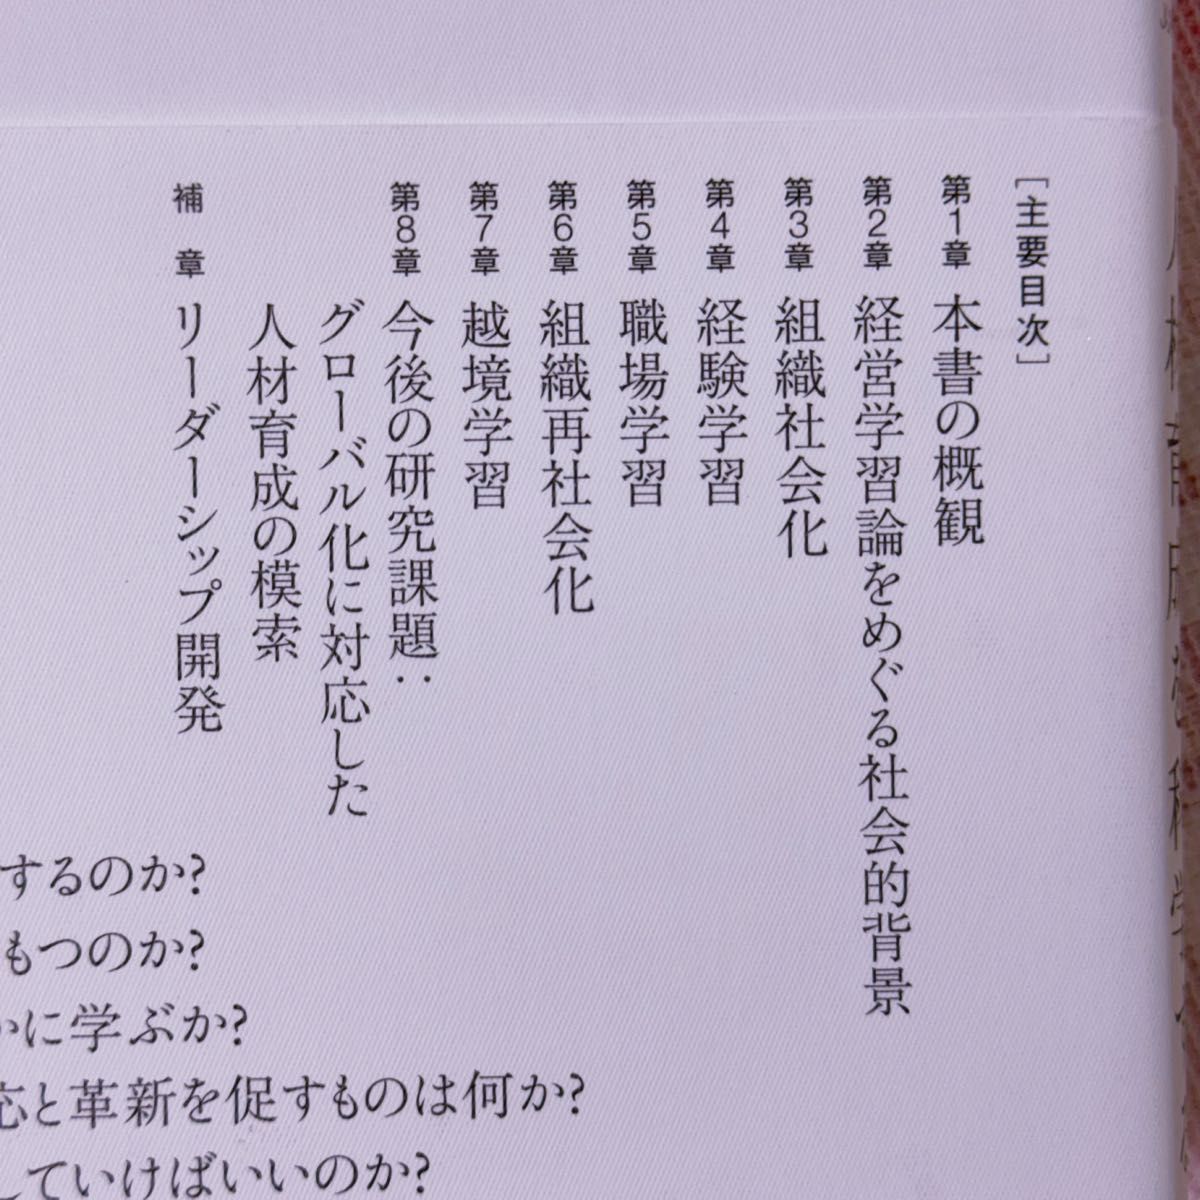 ［主要目次］
第1章 本書の概観
第2章 経営学習論をめぐる社会的背景
第3章 組織社会化
第4章 経験学習
第5章 職場学習
第6章 組織再社会化
第7章 越境学習
第8章 今後の研究課題：
グローバル化に対応した
人材育成の模索
補 章 リーダーシップ開発
するのか?
もつのか?
に学ぶか?
応と革新を促すものは何か?
していけばいいのか?